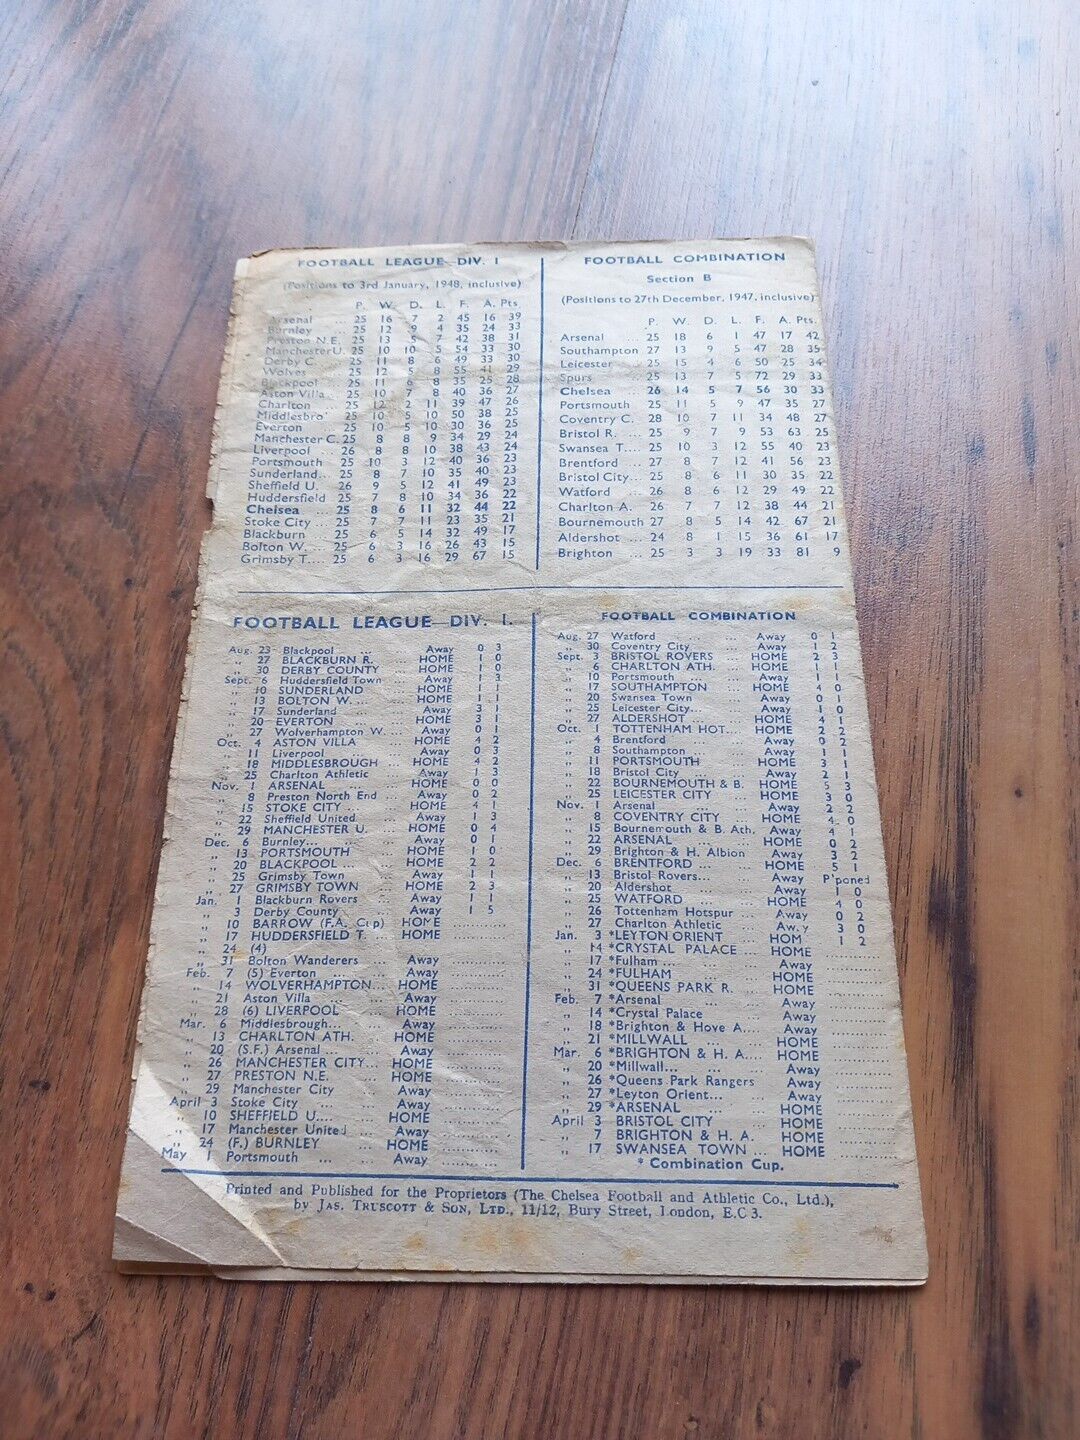 FOOTBALL LEAGUE—DIV. I
(Positions to 3rd January, 1948, inclusive)
P. W. D. L. F. A. Pts.
Arsenal ... 25 16 7 2 45 16 39
Burnley ... 25 12 9 4 35 24 33
Preston N.E. 25 13 5 7 42 38 31
Manchester U. 25 10 10 5 54 33 30
Derby C. 25 11 8 6 49 33 30
Wolves ... 25 12 5 8 55 41 29
Blackpool ... 25 11 6 8 35 25 28
Aston Villa... 25 10 7 8 40 36 27
Charlton ... 25 12 2 11 39 47 26
Middlesbro' 25 10 5 10 50 38 25
Everton ... 25 10 5 10 30 36 25
Manchester C. 25 8 8 9 34 29 24
Liverpool ... 26 8 8 10 38 43 24
Portsmouth 25 10 3 12 40 36 23
Sunderland... 25 8 7 10 35 40 23
Sheffield U. 26 9 5 12 41 49 23
Huddersfield 25 7 8 10 34 36 22
Chelsea ... 25 8 6 11 32 44 22
Stoke City ... 25 7 7 11 23 35 21
Blackburn ... 25 6 5 14 31 42
Bolton W. ... 25 6 3 16 26 43 15
Grimsby T.... 25 6 3 16 29 67 15
FOOTBALL COMBINATION
Section B
(Positions to 27th December, 1947, inclusive)
P. W. D. L. F. A. Pts.
Arsenal ... 25 18 6 1 47 17 42
Southampton 27 13 9 5 47 28 35
Leicester ... 25 15 4 6 50 25 34
Spurs ... 25 13 7 5 72 29 33
Chelsea ... 26 14 5 7 56 30 33
Portsmouth 25 11 5 9 47 35 27
Coventry C. 28 10 7 11 34 48 27
Bristol R. ... 25 9 7 9 53 63 25
Swansea T.... 25 10 3 12 55 40 23
Brentford ... 27 8 7 12 41 56 23
Bristol City... 25 8 6 11 30 35 22
Watford ... 26 8 6 12 29 49 22
Charlton A. 26 7 7 12 38 44 21
Bournemouth 27 8 5 14 42 67 21
Aldershot ... 24 8 1 15 36 61 17
Brighton ... 25 3 3 19 33 81 9
FOOTBALL LEAGUE—DIV. I.
Aug. 23 Blackpool ... ... Away 0 3
„ 27 BLACKBURN R. ... HOME 1 0
„ 30 DERBY COUNTY ... HOME 1 0
Sept. 6 Huddersfield Town ... Away 1 3
„ 10 SUNDERLAND ... HOME 1 1
„ 13 BOLTON W. ... ... HOME 1 1
„ 17 Sunderland ... ... Away 3 1
„ 20 EVERTON ... ... HOME 3 1
„ 27 Wolverhampton W. ... Away 0 1
Oct. 4 ASTON VILLA ... HOME 4 2
„ 11 Liverpool ... ... Away 0 3
„ 18 MIDDLESBROUGH ... HOME 4 2
„ 25 Charlton Athletic ... Away 1 3
Nov. 1 ARSENAL ... ... HOME 0 0
„ 8 Preston North End ... Away 0 2
„ 15 STOKE CITY ... ... HOME 4 1
„ 22 Sheffield United ... Away 1 3
„ 29 MANCHESTER U. ... HOME 0 4
Dec. 6 Burnley... ... ... Away 0 1
„ 13 PORTSMOUTH ... HOME 1 0
„ 20 BLACKPOOL ... ... HOME 2 2
„ 25 Grimsby Town ... Away 1 1
„ 27 GRIMSBY TOWN ... HOME 2 3
Jan. 1 Blackburn Rovers ... Away 1 1
„ 3 Derby County ... Away 1 5
„ 10 BARROW (F.A. Cup) HOME
„ 17 HUDDERSFIELD T. ... HOME
„ 24 (4)
„ 31 Bolton Wanderers ... Away
Feb. 7 (5) Everton ... ... Away
„ 14 WOLVERHAMPTON... HOME
„ 21 Aston Villa ... ... Away
„ 28 (6) LIVERPOOL ... HOME
Mar. 6 Middlesbrough... ... Away
„ 13 CHARLTON ATH. ... HOME
„ 20 (S.F.) Arsenal ... ... Away
„ 26 MANCHESTER CITY... HOME
„ 27 PRESTON N.E. ... HOME
„ 29 Manchester City ... Away
April 3 Stoke City ... ... Away
„ 10 SHEFFIELD U.... ... HOME
„ 17 Manchester United ... Away
„ 24 (F.) BURNLEY ... HOME
May 1 Portsmouth ... ... Away
FOOTBALL COMBINATION
Aug. 27 Watford ... ... Away 0 1
„ 30 Coventry City ... Away 1 2
Sept. 3 BRISTOL ROVERS ... HOME 2 3
„ 6 CHARLTON ATH. ... HOME 1 1
„ 10 Portsmouth ... ... Away 1 1
„ 17 SOUTHAMPTON ... HOME 4 0
„ 20 Swansea Town ... Away 0 1
„ 25 Leicester City... ... Away 1 0
„ 27 ALDERSHOT ... ... HOME 4 1
Oct. 1 TOTTENHAM HOT.... HOME 2 2
„ 4 Brentford ... ... Away 0 2
„ 8 Southampton ... ... Away 1 1
„ 11 PORTSMOUTH ... HOME 3 1
„ 18 Bristol City ... ... Away 2 1
„ 22 BOURNEMOUTH & B. HOME 5 3
„ 25 LEICESTER CITY ... HOME 3 0
Nov. 1 Arsenal ... ... Away 2 2
„ 8 COVENTRY CITY ... HOME 4 0
„ 15 Bournemouth & B. Ath. Away 4 1
„ 22 ARSENAL ... ... HOME 0 2
„ 29 Brighton & H. Albion Away 3 2
Dec. 6 BRENTFORD ... ... HOME 5 1
„ 13 Bristol Rovers... ... Away P'poned
„ 20 Aldershot ... ... Away 1 0
„ 25 WATFORD ... ... HOME 4 0
„ 26 Tottenham Hotspur ... Away 0 2
„ 27 Charlton Athletic ... Aw.y 3 0
Jan. 3 *LEYTON ORIENT ... HOM 1 2
„ 14 *CRYSTAL PALACE ... HOME
„ 17 *Fulham ... ... Away
„ 24 *FULHAM ... ... HOME
„ 31 *QUEENS PARK R. ... HOME
Feb. 7 *Arsenal ... ... Away
„ 14 *Crystal Palace ... Away
„ 18 *Brighton & Hove A.... Away
„ 21 *MILLWALL ... ... HOME
Mar. 6 *BRIGHTON & H. A.... HOME
„ 20 *Millwall... ... ... Away
„ 26 *Queens Park Rangers Away
„ 27 *Leyton Orient... ... Away
„ 29 *ARSENAL ... ... HOME
April 3 BRISTOL CITY ... HOME
„ 7 BRIGHTON & H. A. HOME
„ 17 SWANSEA TOWN ... HOME
* Combination Cup.
Printed and Published for the Proprietors (The Chelsea Football and Athletic Co., Ltd.),
by JAS. TRUSCOTT & SON, LTD., 11/12, Bury Street, London, E.C 3.